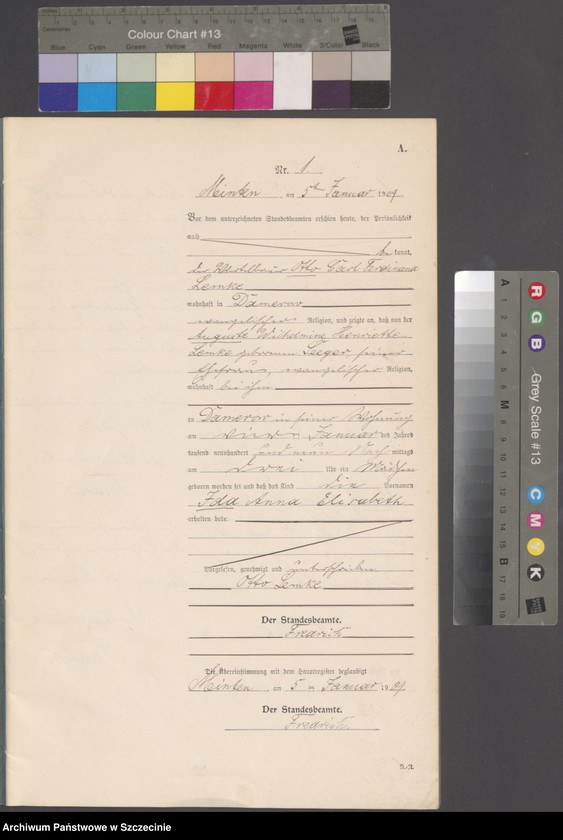 Centimetres
Colour Chart #13
Blue Cyan Green Yellow Red Magenta White 3/Color Black
A.
Nr. 1.
Minten am 5ten Januar 1909
Vor dem unterzeichneten Standesbeamten erschien heute, der Persönlichkeit
nach
be kannt,
der Otto Carl Ferdinand
Lemke
wohnhaft in Damerow
evangelischer Religion, und zeigte an, daß von der
Auguste Wilhelmine Henriette
Lemke geborenen Seeger seiner
Ehefrau, evangelischer Religion,
wohnhaft bei ihm
zu Damerow in seiner Wohnung
am vier Januar des Jahres
tausend neunhundert und neun Nach mittags
um drei Uhr ein Mädchen
geboren worden sei und daß das Kind die Vornamen
Ida Anna Elisabeth
erhalten habe.
Vorgelesen, genehmigt und unterschrieben
Otto Lemke
Der Standesbeamte.
Fredrich
Die Übereinstimmung mit dem Hauptregister beglaubigt
Minten am 5 ten Januar 1909
Der Standesbeamte.
Fredrich.
Grey Scale #13
R
G
B
C
M
Y
K
A
M
B
Archiwum Państwowe w Szczecinie